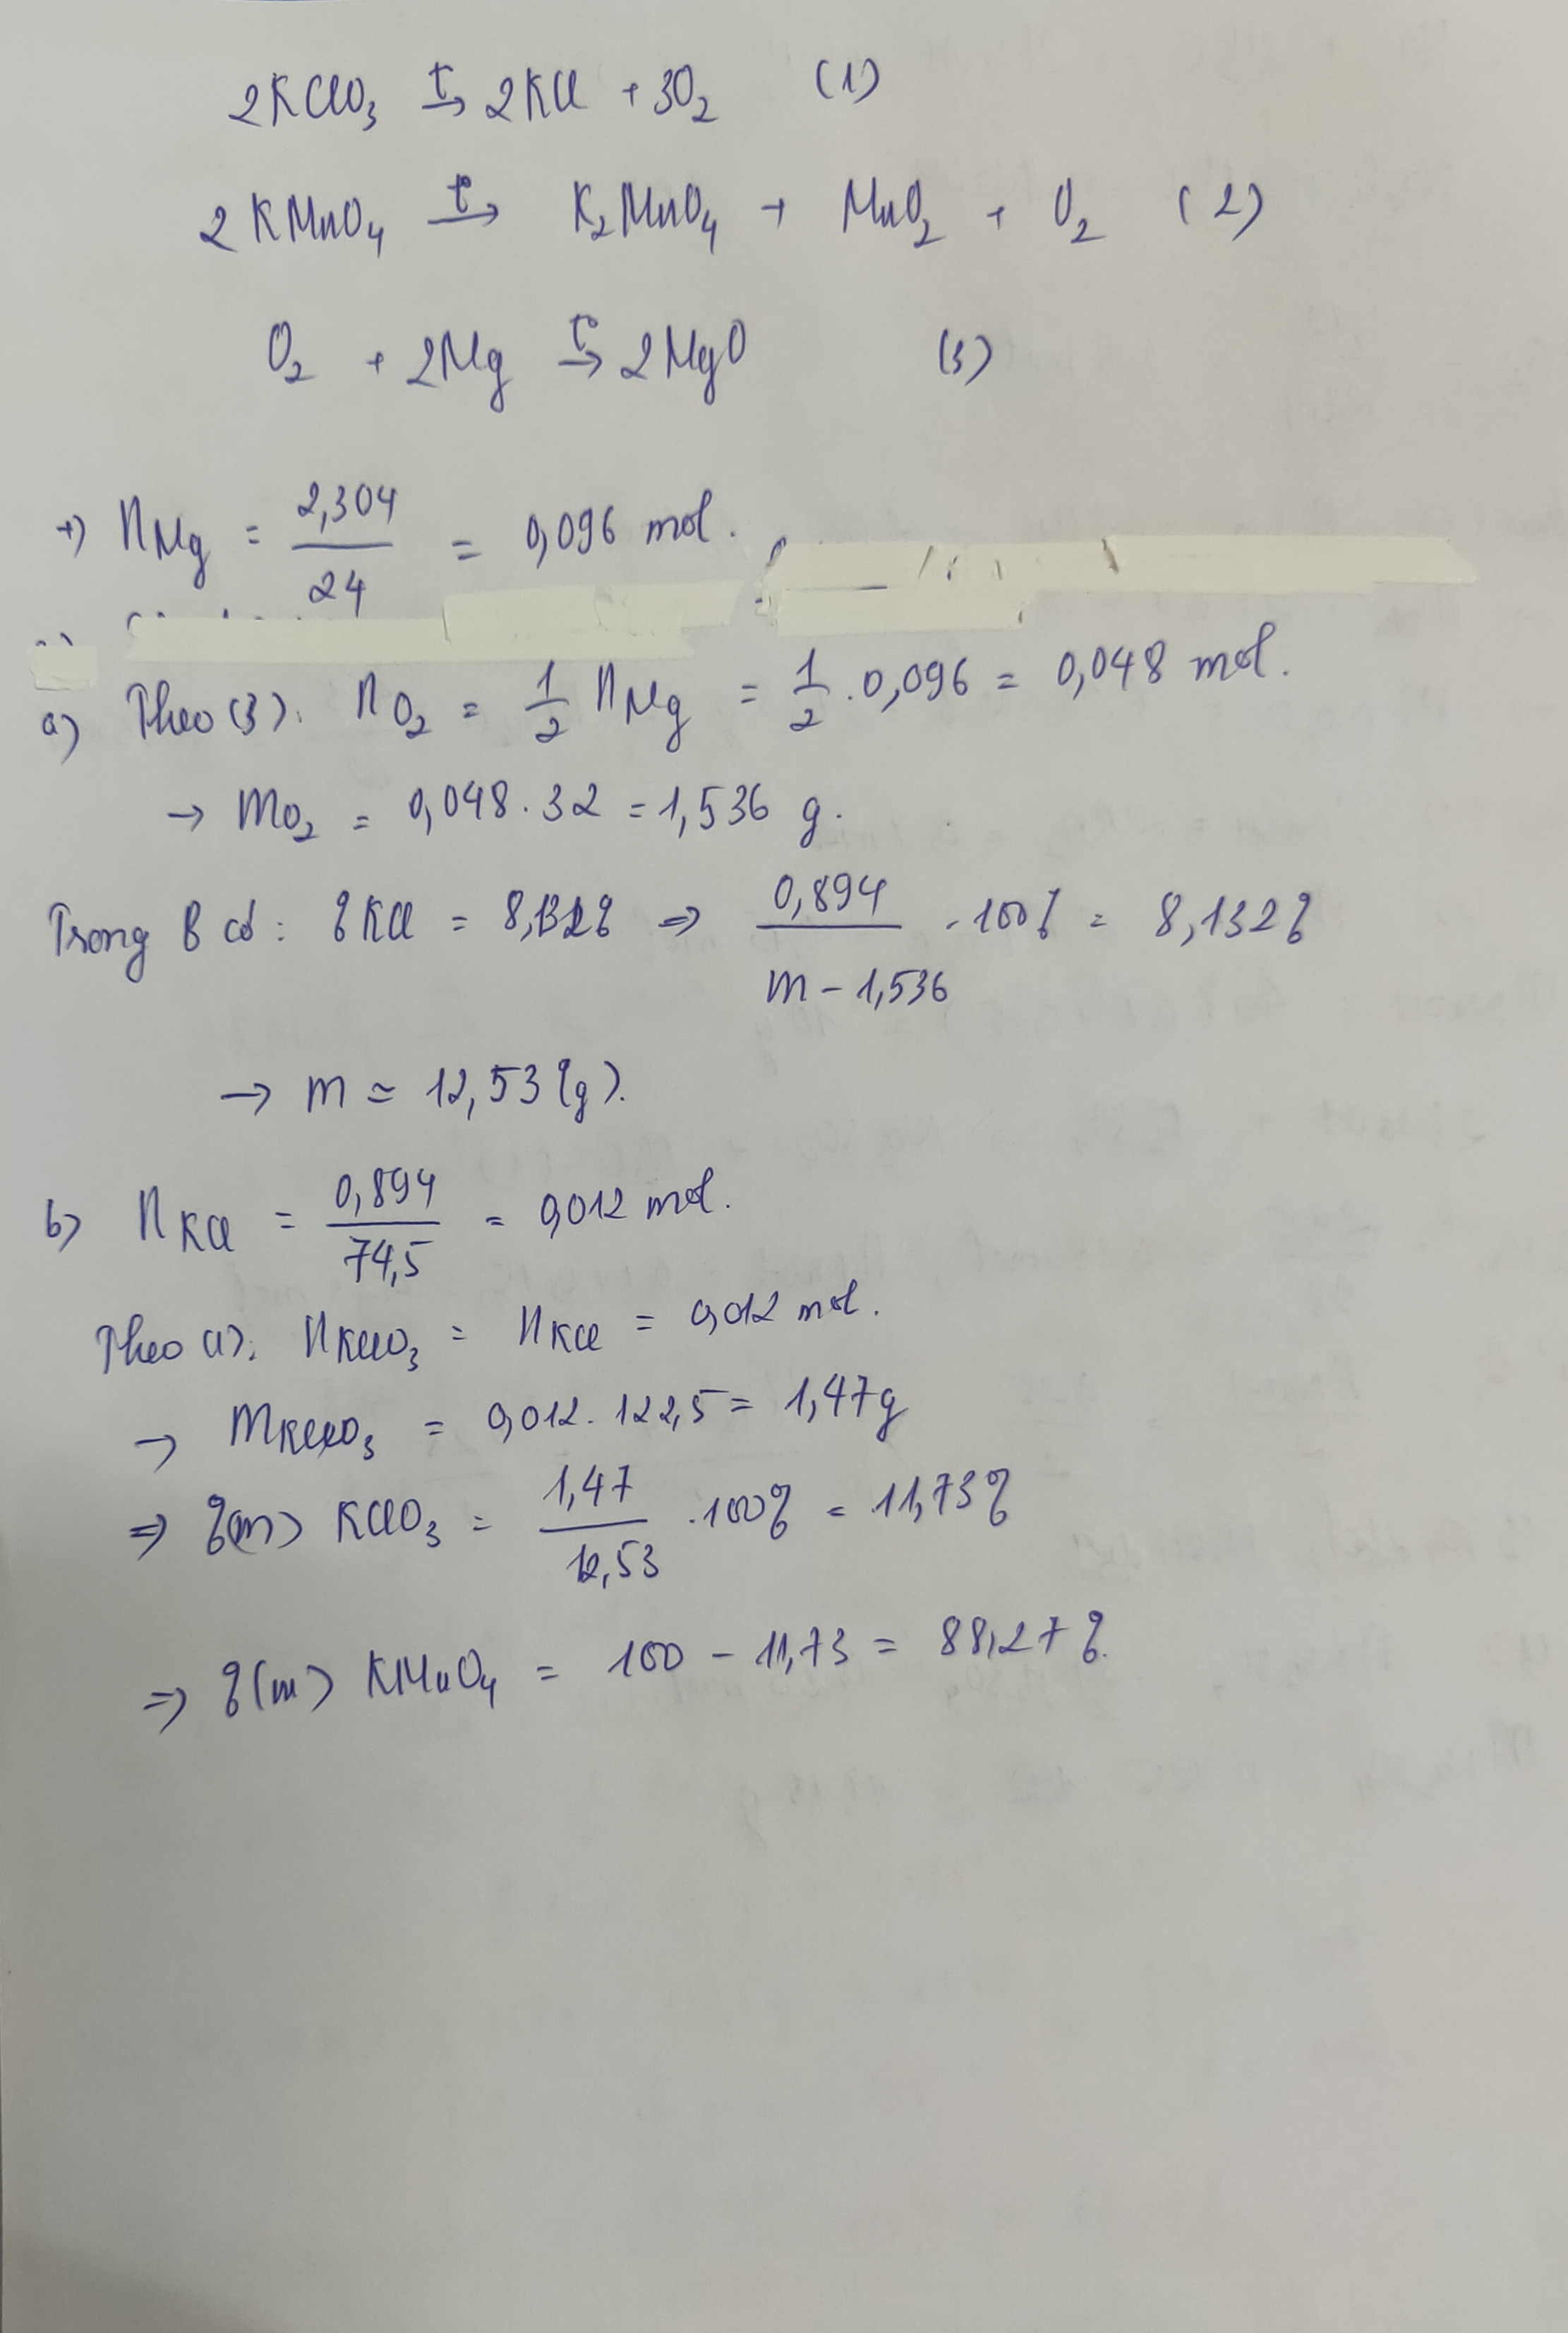 2KClO₃ t°→ 2KCl + 3O₂ (1)
2KMnO₄ t°→ K₂MnO₄ + MnO₂ + O₂ (2)
O₂ + 2Mg t°→ 2MgO (3)
+) nMg = 2,304/24 = 0,096 mol.
a) Theo (3): nO₂ = 1/2 nMg = 1/2 . 0,096 = 0,048 mol.
→ mO₂ = 0,048 . 32 = 1,536 g.
Trong B có: %KCl = 8,132% ⇒ 0,894/(m - 1,536) . 100% = 8,132%
→ m ≃ 12,53 (g).
b) nKCl = 0,894/74,5 = 0,012 mol.
Theo (1): nKClO₃ = nKCl = 0,012 mol.
→ mKClO₃ = 0,012 . 122,5 = 1,47g
⇒ %(m) KClO₃ = 1,47/12,53 . 100% = 11,73%
⇒ %(m) KMnO₄ = 100 - 11,73 = 88,27%.